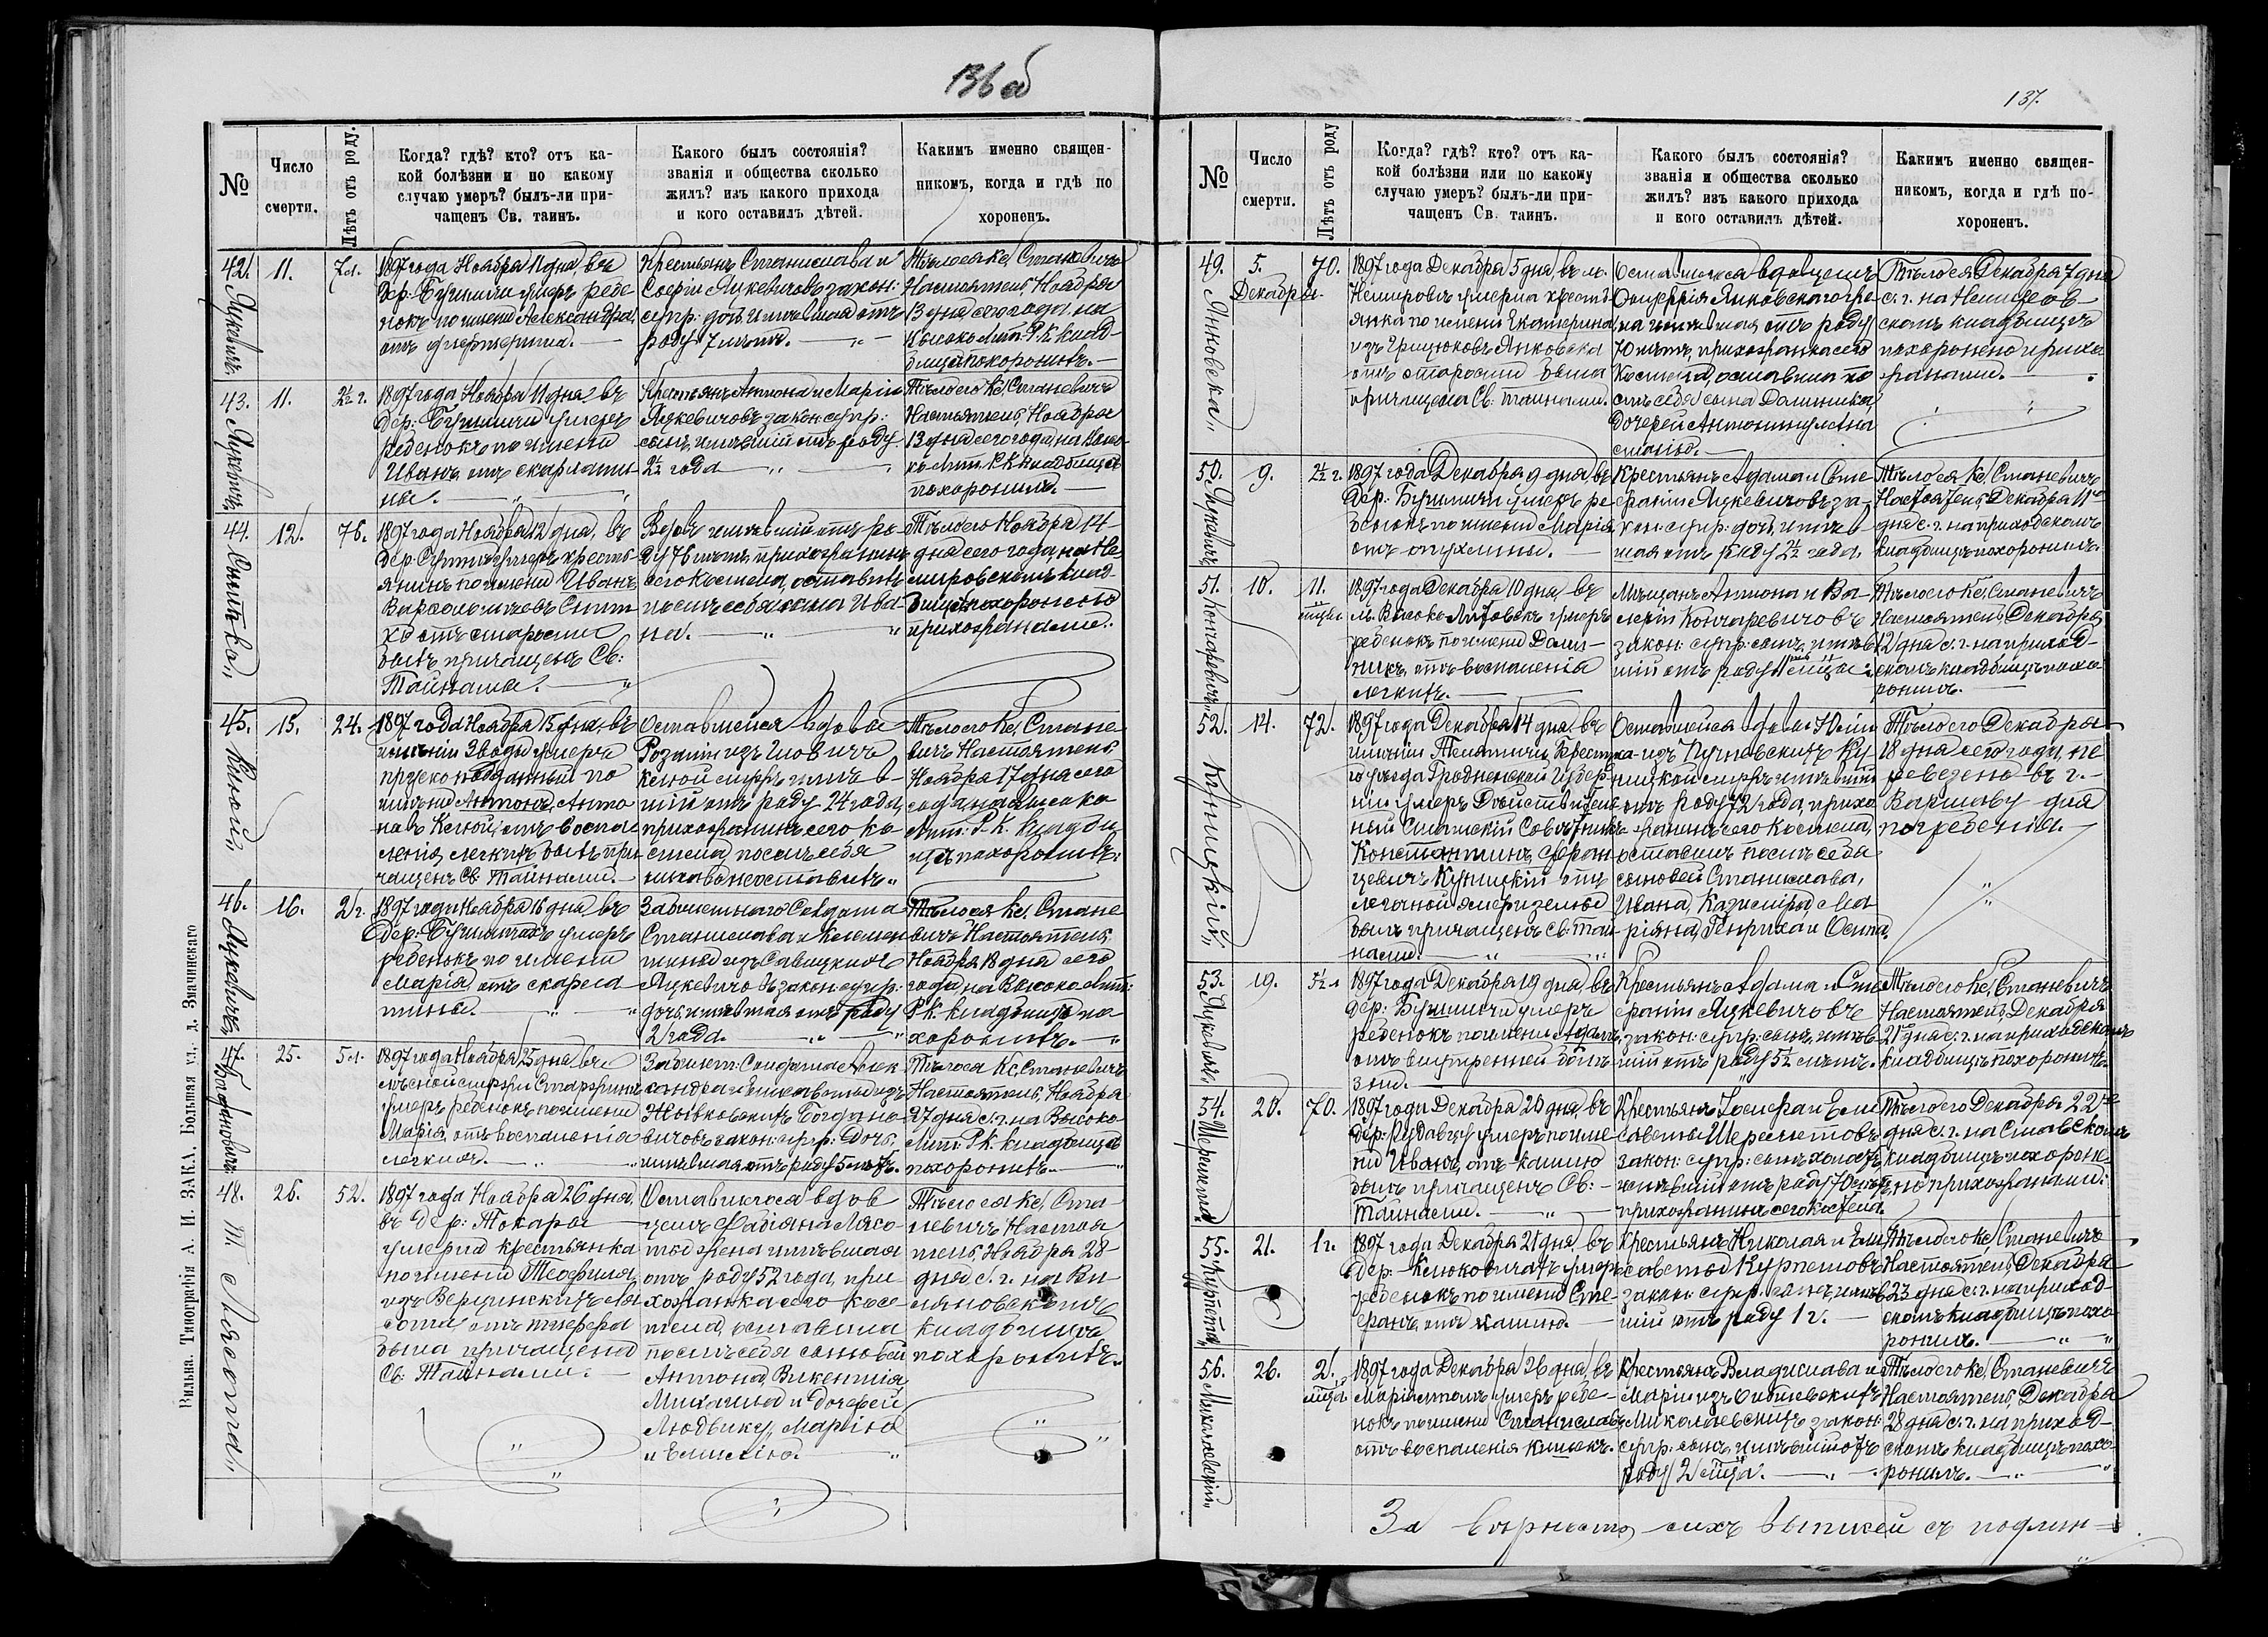 136 об
№
Число
смерти.
Лѣтъ отъ роду.
Когда? гдѣ? кто? отъ ка-
кой болѣзни и по какому
случаю умеръ? былъ-ли при-
чащенъ Св. таинъ.
Какого былъ состоянія?
званія и общества сколько
жилъ? изъ какого прихода
и кого оставилъ дѣтей.
Какимъ именно священ-
никомъ, когда и гдѣ по
хороненъ.
42.
Лукевичъ
11.
7 л.
1897 года Ноября 11 дня въ
дер: умеръ ребе
нокъ по имени Александра,
отъ дифтерита.
Крестьянъ Станислава и
Софіи Лукевичовъ закон:
супр: дочь имѣвшая отъ
роду 7 лѣтъ.
Тѣло ея Кс. Станевичъ
Настоятель, Ноября
13 дня сего года на
Высоко Лит. Р. К. клад-
бищѣ похоронилъ.
43.
Лукевичъ
11.
2½ г.
1897 года Ноября 11 дня въ
дер: умеръ
ребенокъ по имени
Иванъ отъ скарлати-
ны.
Крестьянъ Антона и Маріи
Лукевичовъ закон: супр:
сынъ имѣвшій отъ роду
2½ года
Тѣло его Кс. Станевичъ
Настоятель, Ноября
13 дня сего года на Высо-
ко Лит. Р. К. кладбищѣ
похоронилъ.
44.
Снитко
12.
76.
1897 года Ноября 12 дня, въ
дер: умеръ кресть
янинъ по имени Иванъ
Снит
ко отъ старости
былъ причащенъ Св:
Тайнами.
Вдовъ имѣвшій отъ ро-
ду 76 лѣтъ, прихожанинъ
сего Костела, оставилъ
послѣ себя сына Ива-
на.
Тѣло его Ноября 14
дня сего года, на Не
мировскомъ клад-
бищѣ похоронено
прихожанами.
45.
15.
24.
1897 года Ноября 15 дня, въ
имѣніи Зводы умеръ
прусско подданный по
имени Антонъ, Анто
новъ отъ воспа-
ленія легкихъ былъ при-
чащенъ Св. Тайнами.
Оставшейся вдовы
Розаліи изъ
супр: имѣв-
шій отъ роду 24 года,
прихожанинъ сего ко-
стела, послѣ себя
никого не оставилъ
Тѣло его Кс. Стане
вичъ Настоятель
Ноября 17 дня сего
года на Высоко
Лит: Р. К. кладби-
щѣ похоронилъ.
46.
Лукевичъ
16.
2 г.
1897 года Ноября 16 дня, въ
дер: умеръ
ребенокъ по имени
Марія отъ скарла
тины.
Забилетнаго Солдата
Станислава и Клемен
тины изъ Савицкихъ
Лукевичовъ закон: супр:
дочь имѣвшая отъ роду
2 года.
Тѣло ея Кс. Стане
вичъ Настоятель,
Ноября 18 дня сего
года на Высоко Лит:
Р. К. кладбищѣ по
хоронилъ.
47.
Богдановичъ
25.
5 л.
1897 года Ноября 25 дня въ
умеръ ребенокъ по имени
Марія, отъ воспаленія
легкихъ.
Забилет: Солдата Алек
сандра и Елисаветы изъ
Богдано-
вичовъ закон: супр: Дочь,
имѣвшая отъ роду 5 лѣтъ.
Тѣло ея Кс. Станевичъ
Настоятель, Ноября
27 дня с. г. на Высоко
Лит: Р. К. кладбищѣ
похоронилъ.
48.
Лясота
26.
52.
1897 года Ноября 26 дня,
въ дер: Токары
умерла крестьянка
по имени Теофиля
изъ Ля
сота отъ тифа
была причащена
Св: Тайнами.
Оставшагося вдов
цемъ Фабіана Лясо-
ты жена имѣвшая
отъ роду 52 года, при-
хожанка сего кос-
тела, оставила
послѣ себя сыновей
Антона, Викентія
Михаила и дочерей
Людвику, Марію
и Емилію.
Тѣло ея Кс. Ста
невичъ Настоя
тель, Ноября 28
дня с. г. на Ви-
ляновскомъ
кладбищѣ
похоронилъ.
Вильна. Типографія А. И. ЗАКА. Большая ул., д. Значинскаго
137.
№
Число
смерти.
Лѣтъ отъ роду
Когда? гдѣ? кто? отъ ка-
кой болѣзни или по какому
случаю умеръ? былъ-ли при-
чащенъ Св. таинъ.
Какого былъ состоянія?
званія и общества сколько
жилъ? изъ какого прихода
и кого оставилъ дѣтей.
Какимъ именно священ-
никомъ, когда и гдѣ по-
хороненъ.
49.
Янковска
5.
Декабря.
70.
1897 года Декабря 5 дня въ м.
Немировѣ умерла кресть
янка по имени Екатерина
изъ Грицуковъ Янковска
отъ старости была
причащена Св: тайнами.
Оставшагося вдовцемъ
Онуфрія Янковскаго же
на имѣвшая отъ роду
70 лѣтъ, прихожанка сего
Костела, оставила по
слѣ себя сына Доминика,
Дочерей Антонину и Ана
стасію.
Тѣло ея Декабря 7 дня
с. г. на Немиров
скомъ кладбищѣ
похоронено прихо
жанами.
50.
Лукевичъ
9.
2½ г.
1897 года Декабря 9 дня въ
дер: умеръ ре-
бенокъ по имени Марія
отъ опухлины.
Крестьянъ Адама и Сте
фаніи Лукевичовъ за-
кон: супр: дочь, имѣв
шая отъ роду 2½ года.
Тѣло ея Кс. Станевичъ
Настоятель, Декабря 11
дня с. г. на приходскомъ
кладбищѣ похоронилъ.
51.
Кончаревичъ
10.
11.
мѣся.
1897 года Декабря 10 дня въ
м. Высоко Литовскъ умеръ
ребенокъ по имени Доми-
никъ, отъ воспаленія
легкихъ.
Мѣщанъ Антона и Ва-
леріи Кончаревичовъ
закон: супр: сынъ, имѣв
шій отъ роду 11 мѣся:
Тѣло его Кс. Станевичъ
Настоятель, Декабря
12 дня с. г. на приход-
скомъ кладбищѣ похо
ронилъ.
52.
Куницкій
14.
72.
1897 года Декабря 14 дня, въ
имѣніи Телятичи, Брестска-
го уѣзда Гродненской Губер-
ніи умеръ Дѣйствитель-
ный Статскій Совѣтникъ
Константинъ Фран
цевичъ Куницкій отъ
легочной емфиземы
былъ причащенъ Св: Тай
нами.
Оставшейся вдовы Юлі
и изъ Ку
ницкой супр: имѣвшій
отъ роду 72 года, прихо
жанинъ сего Костела,
оставилъ послѣ себя
сыновей Станислава,
Ивана, Казимира, Ма
ріяна, Генриха и Осипа.
Тѣло его Декабря
18 дня сего года, пе
ревезено въ г.
Варшаву для
погребенія.
53.
Лукевичъ
19.
5½ л
1897 года Декабря 19 дня, въ
дер: умеръ
ребенокъ по имени Адамъ,
отъ внутренней болѣ
зни.
Крестьянъ Адама и Сте
фаніи Лукевичовъ
закон: супр: сынъ, имѣв
шій отъ роду 5½ лѣтъ.
Тѣло его Кс. Станевичъ
Настоятель, Декабря
21 дня с. г. на приходскомъ
кладбищѣ похоронилъ.
54.
20.
70.
1897 года Декабря 20 дня, въ
дер: умеръ по име
ни Иванъ, отъ кашлю
былъ причащенъ Св:
Тайнами.
Крестьянъ Іосифа и Ели
саветы Шереметовъ
закон: супр: сынъ холостъ,
имѣвшій отъ роду 70 лѣтъ
прихожанинъ сего костела.
Тѣло его Декабря 22
дня с. г. на Ставскомъ
кладбищѣ похороне-
но прихожанами.
55.
Курпета
21.
1 г.
1897 года Декабря 21 дня, въ
дер: Клюковичахъ умеръ
ребенокъ по имени Сте-
фанъ, отъ кашлю.
Крестьянъ Николая и Ели
саветы Курпетовъ
закон: супр: сынъ, имѣв
шій отъ роду 1 г.
Тѣло его Кс. Станевичъ
Настоятель, Декабря
23 дня с. г. на приход-
скомъ кладбищѣ похо
ронилъ.
56.
26.
2.
мѣся.
1897 года Декабря 26 дня, въ
умеръ ребе-
нокъ по имени Станиславъ
отъ воспаленія кишекъ.
Крестьянъ Владислава и
Маріи изъ
закон:
супр: сынъ, имѣвшій отъ
роду 2 мѣся.
Тѣло его Кс. Станевичъ
Настоятель, Декабря
28 дня с. г. на приход-
скомъ кладбищѣ похо-
ронилъ.
За вѣрность сихъ выписей съ подлин-